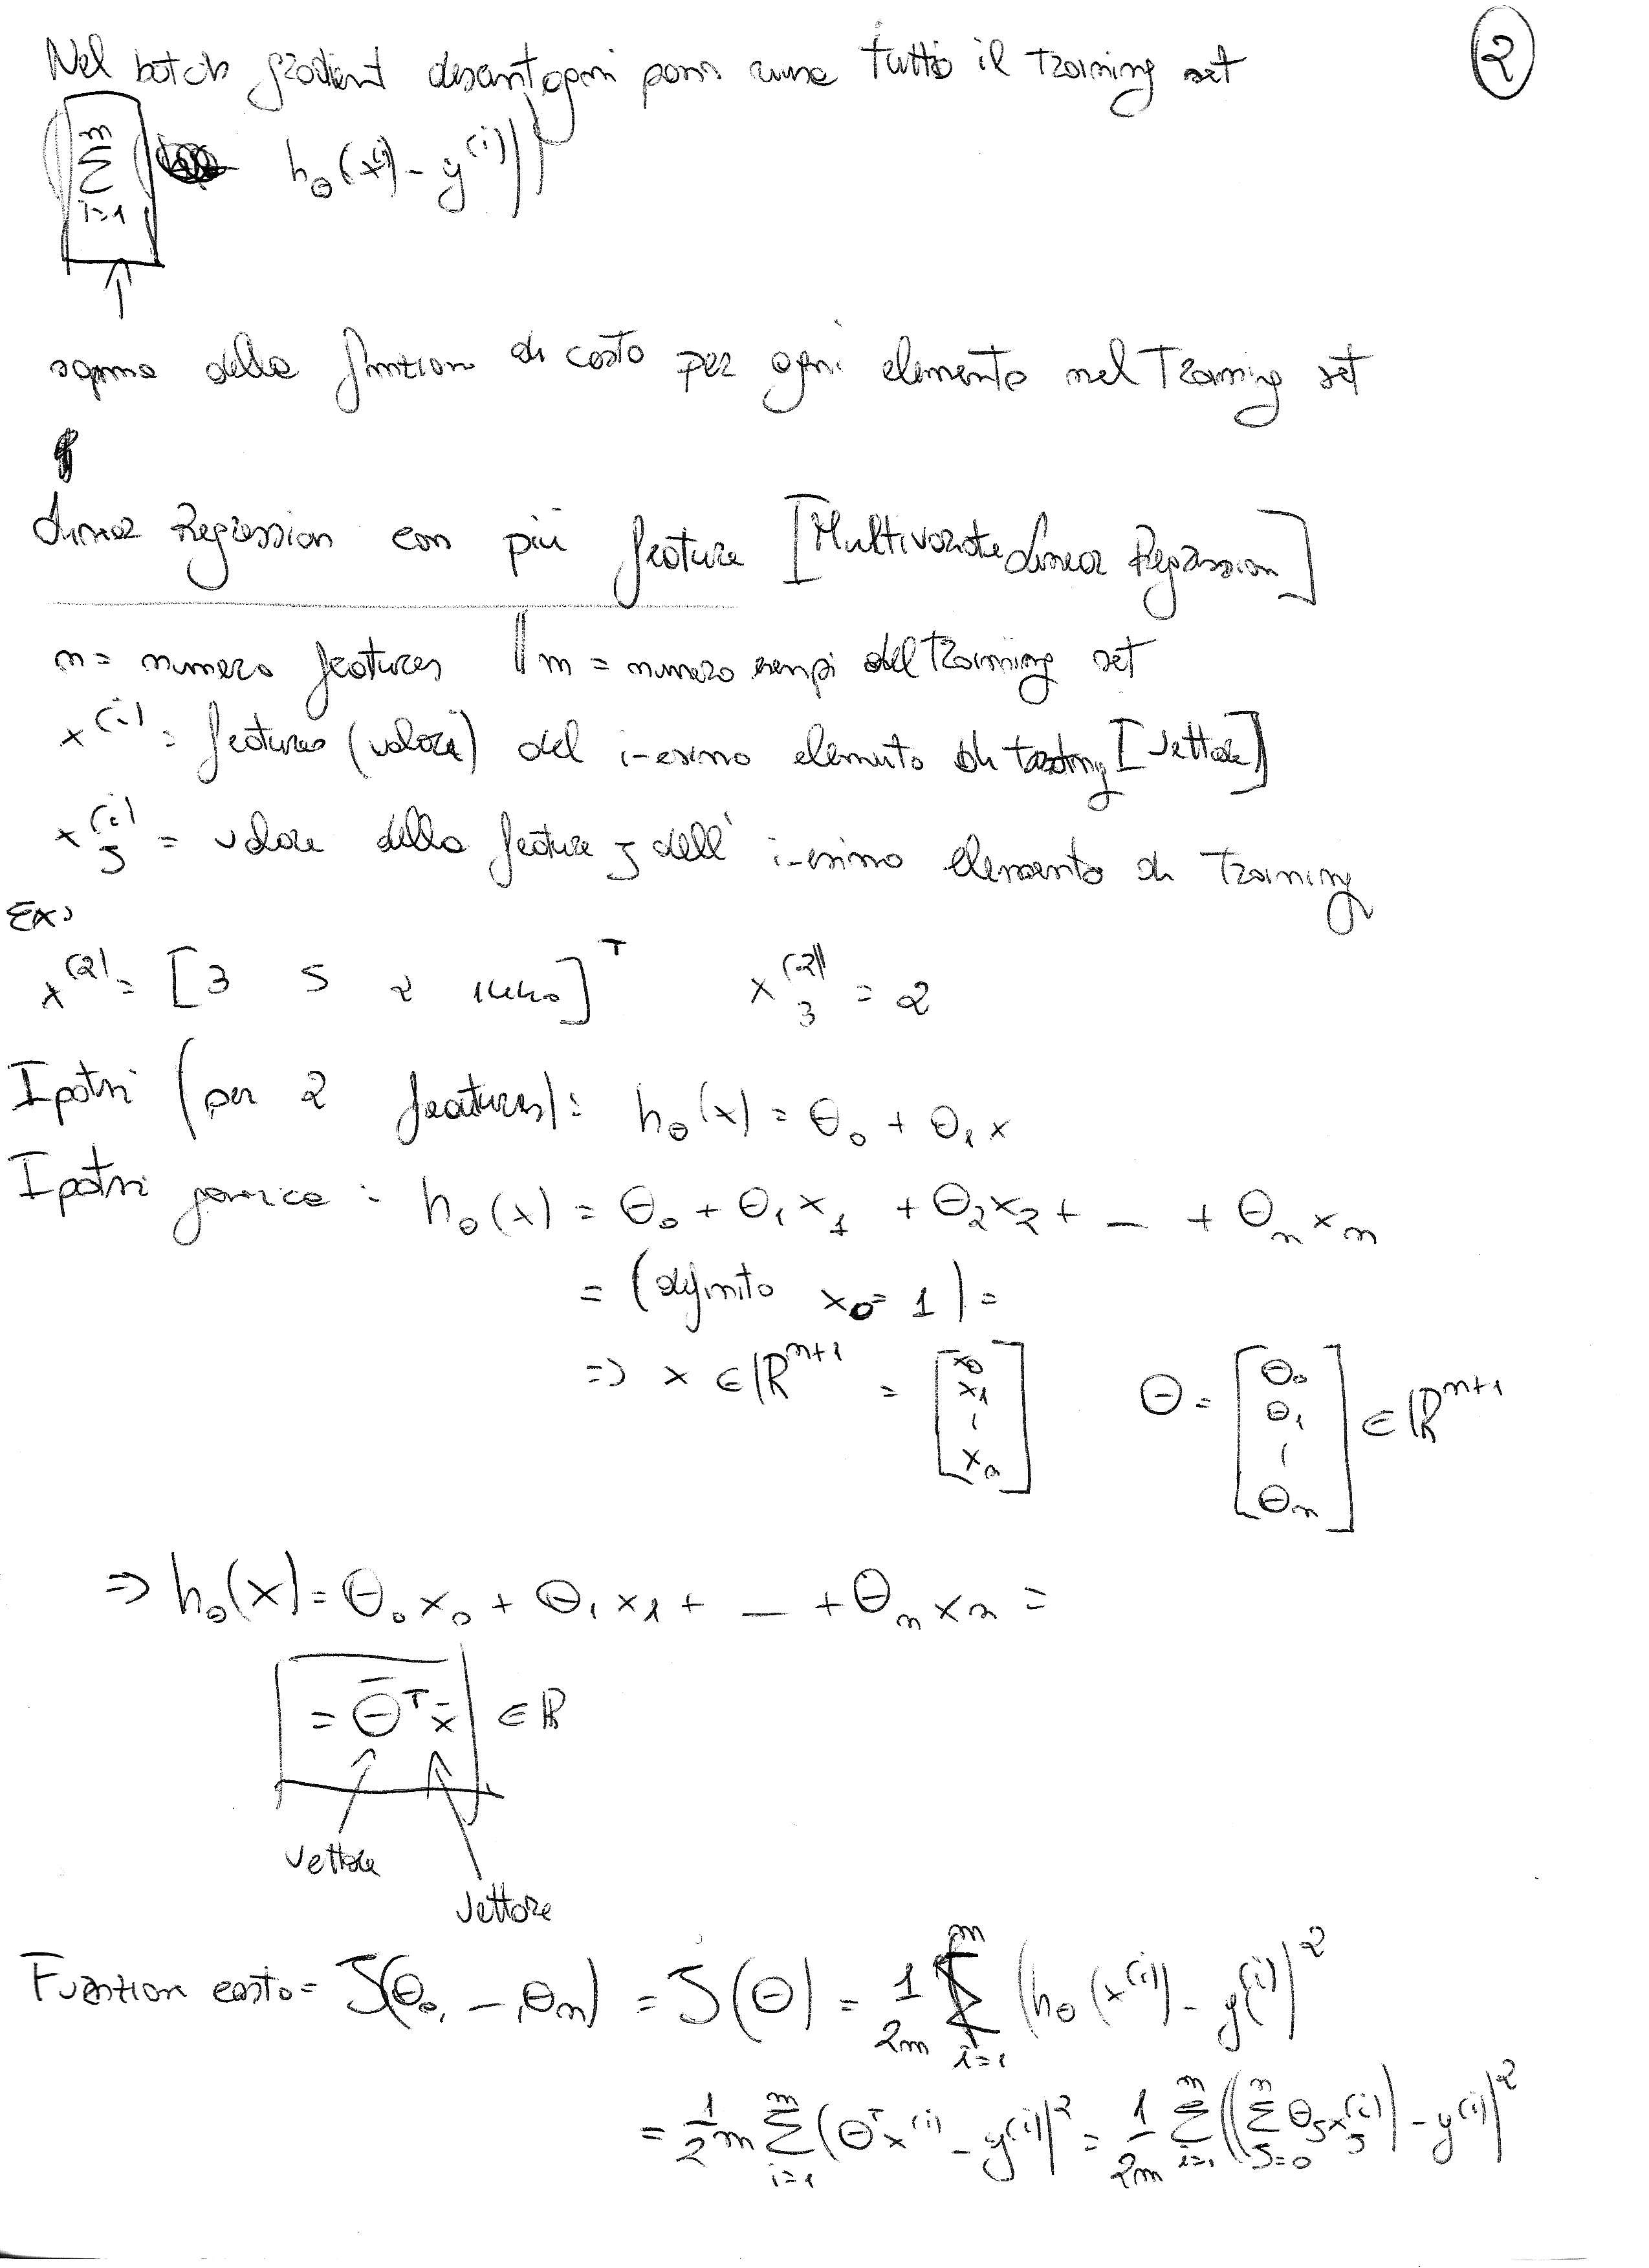 Nel batch gradient descent ogni passo usa tutto il training set
②
(∑_{i=1}^{m} (h_θ(x^{(i)}) - y^{(i)}))
↑
somma della funzione di costo per ogni elemento nel Training set
Linear Regression con più feature [Multivariate Linear Regression]
n = numero features || m = numero esempi del training set
x^{(i)} = features (valori) del i-esimo elemento di training [vettore]
x_j^{(i)} = valore della feature j dell' i-esimo elemento di training
Ex:
x^{(2)} = [3 5 2 1440]^T    x_3^{(2)} = 2
Ipotesi (per 2 features): h_θ(x) = θ_0 + θ_1 x
Ipotesi generica : h_θ(x) = θ_0 + θ_1 x_1 + θ_2 x_2 + _ + θ_n x_n
= (definito x_0 = 1) =
=> x ∈ ℝ^{n+1} = [x_0 x_1 ⋮ x_n]    θ = [θ_0 θ_1 ⋮ θ_n] ∈ ℝ^{n+1}
=> h_θ(x) = θ_0 x_0 + θ_1 x_1 + _ + θ_n x_n =
= θ̄^T x̄ ∈ ℝ
vettore
vettore
Funzione costo = J(θ_0, _, θ_n) = J(θ) = 1/2m ∑_{i=1}^{m} (h_θ(x^{(i)}) - y^{(i)})^2
= 1/2m ∑_{i=1}^{m} (θ^T x^{(i)} - y^{(i)})^2 = 1/2m ∑_{i=1}^{m} ((∑_{j=0}^{n} θ_j x_j^{(i)}) - y^{(i)})^2